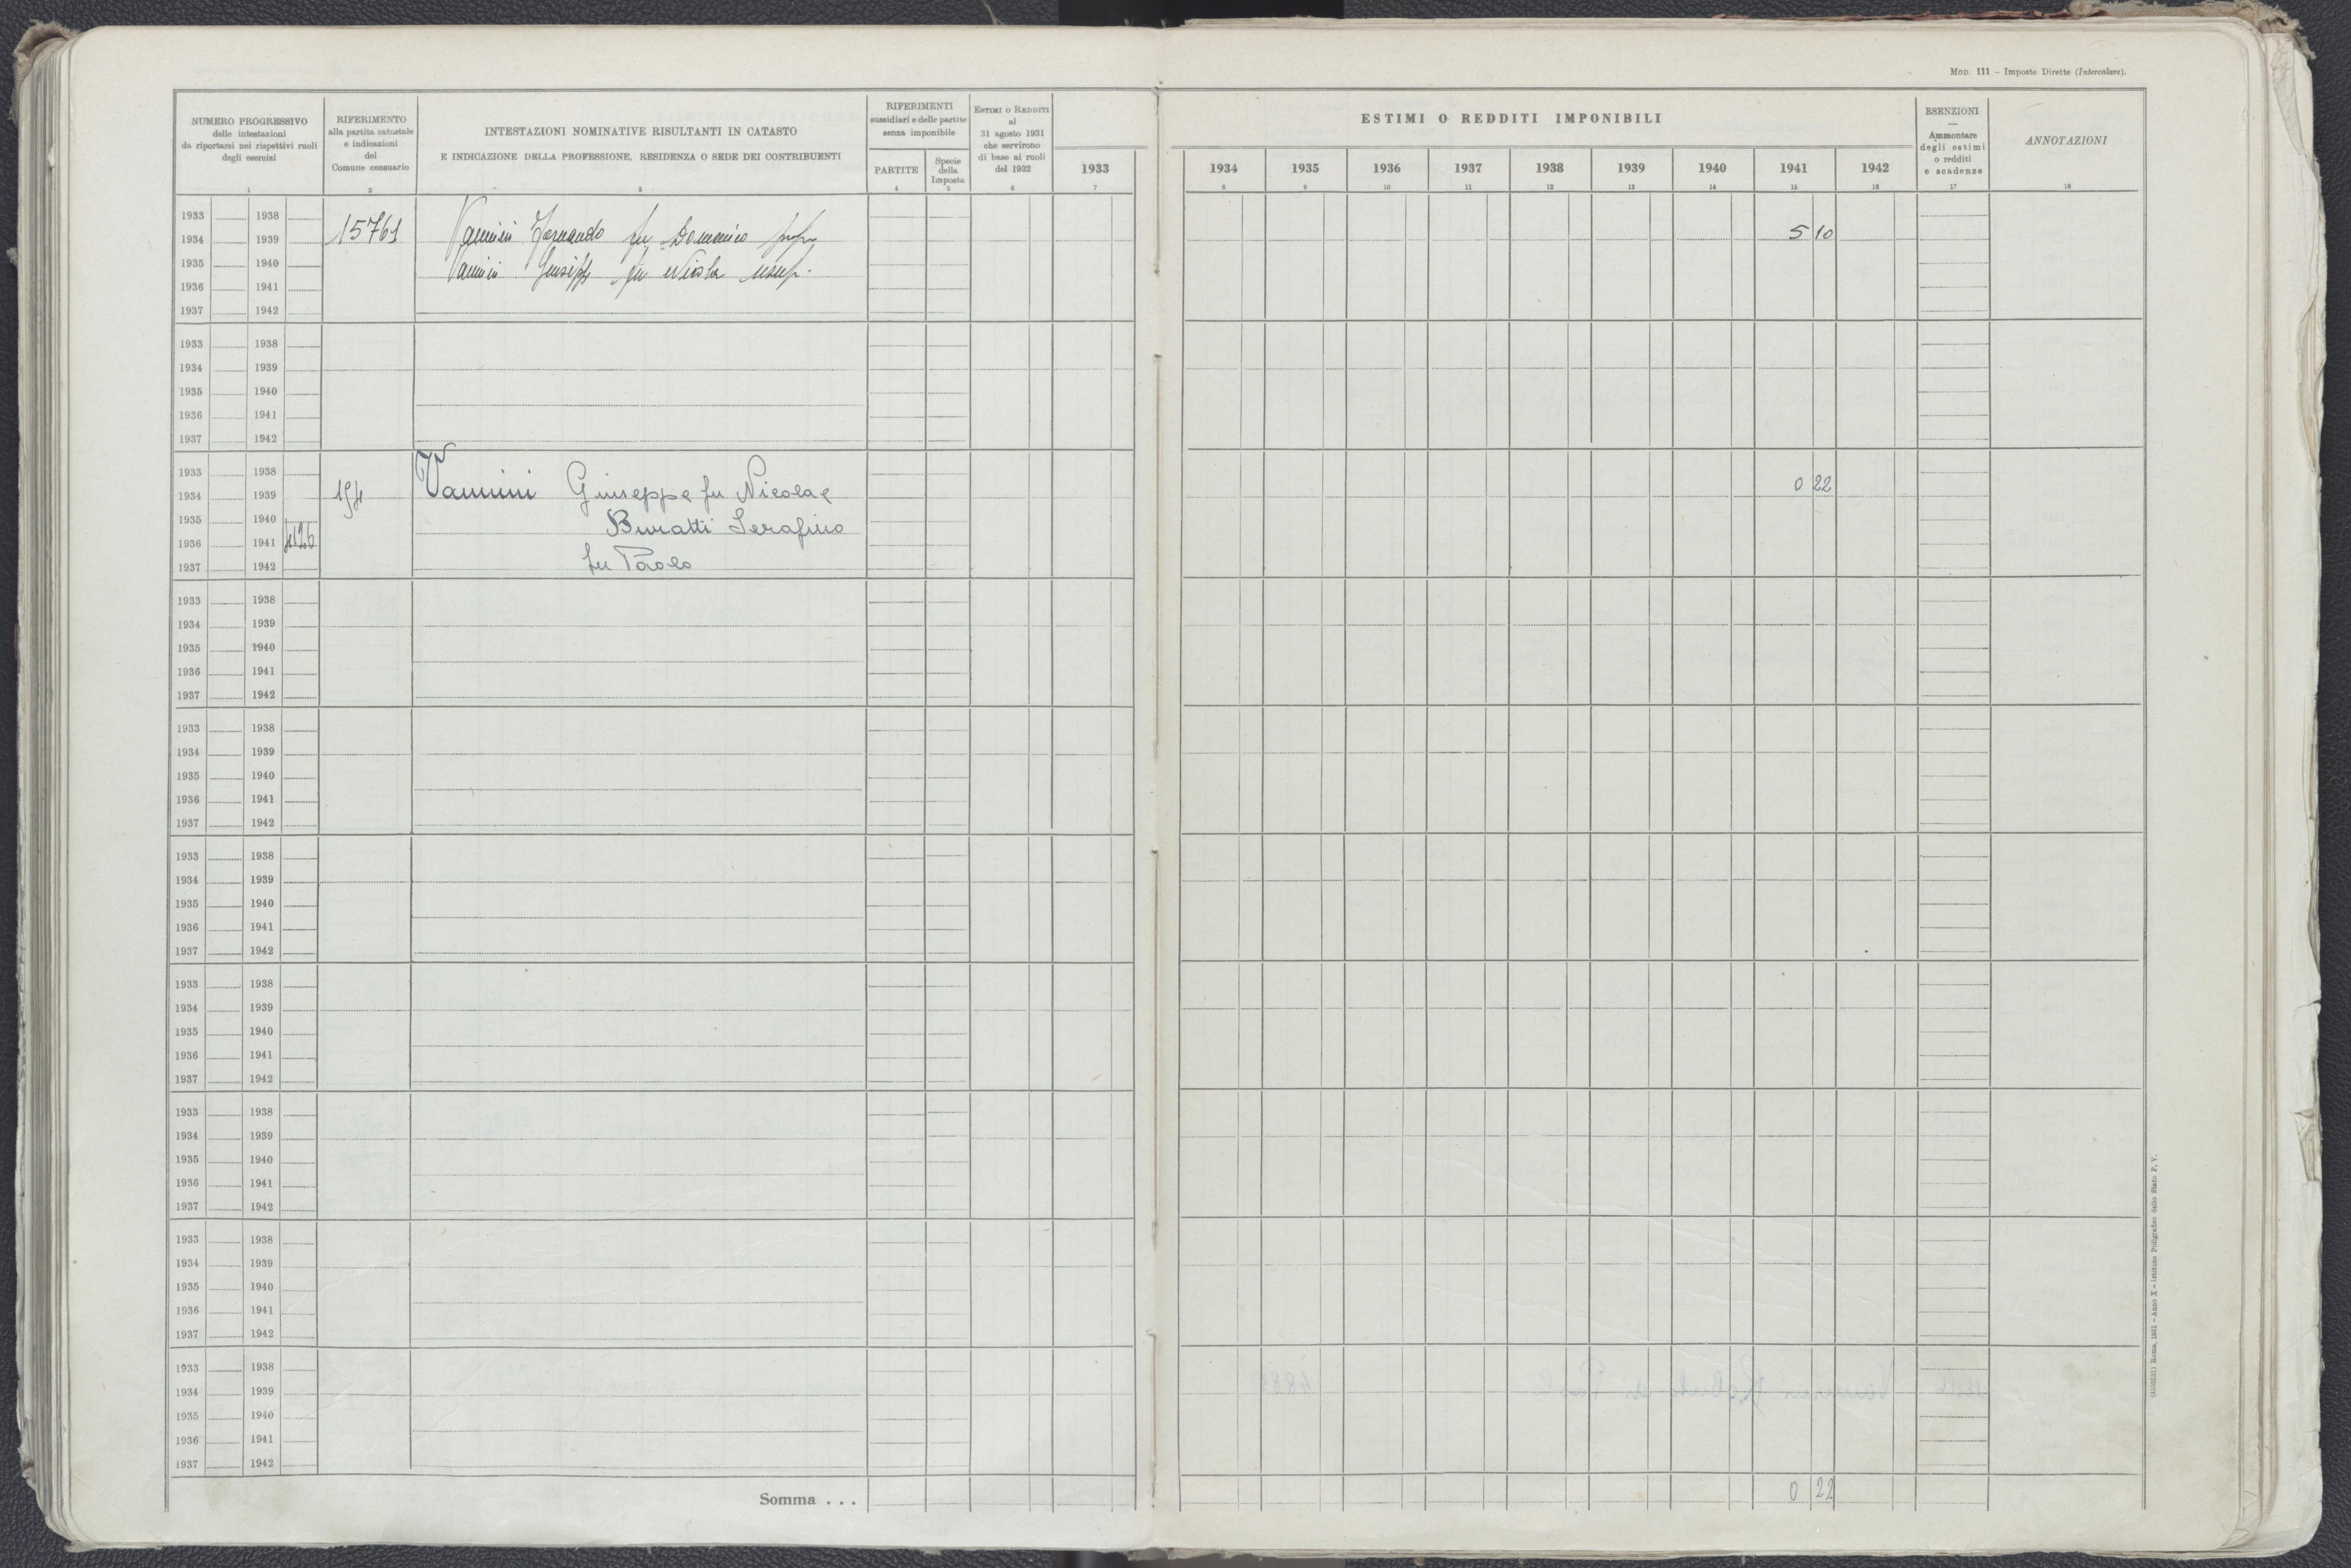 Mod. 111 – Imposte Dirette (Intercalare).
NUMERO PROGRESSIVO
delle intestazioni
da riportarsi nei rispettivi ruoli
degli esercizi
1
RIFERIMENTO
alla partita catastale
e indicazioni
del
Comune censuario
2
INTESTAZIONI NOMINATIVE RISULTANTI IN CATASTO
E INDICAZIONE DELLA PROFESSIONE, RESIDENZA O SEDE DEI CONTRIBUENTI
3
RIFERIMENTI
sussidiari e delle partite
senza imponibile
PARTITE
4
Specie
della
Imposta
5
Estimi o Redditi
al
31 agosto 1931
che servirono
di base ai ruoli
del 1932
6
1933
7
ESTIMI O REDDITI IMPONIBILI
1934 1935 1936 1937 1938 1939 1940 1941 1942
8 9 10 11 12 13 14 15 16
ESENZIONI
—
Ammontare
degli estimi
o redditi
e scadenze
17
ANNOTAZIONI
18
1933 1938
1934 1939 15761 Vannini Fernando fu Domenico propr 5 10
1935 1940 Vannini Giuseppe fu Nicola usuf.
1936 1941
1937 1942
1933 1938
1934 1939
1935 1940
1936 1941
1937 1942
1933 1938
1934 1939 194 Vannini Giuseppe fu Nicola e 0 22
1935 1940 Buratti Serafino
1936 1941 4126
1937 1942 fu Paolo
1933 1938
1934 1939
1935 1940
1936 1941
1937 1942
1933 1938
1934 1939
1935 1940
1936 1941
1937 1942
1933 1938
1934 1939
1935 1940
1936 1941
1937 1942
1933 1938
1934 1939
1935 1940
1936 1941
1937 1942
1933 1938
1934 1939
1935 1940
1936 1941
1937 1942
1933 1938
1934 1939
1935 1940
1936 1941
1937 1942
1933 1938
1934 1939
1935 1940
1936 1941
1937 1942
Somma . . . 0 22
Roma, 1931 – Anno X – Istituto Poligrafico dello Stato P. V.